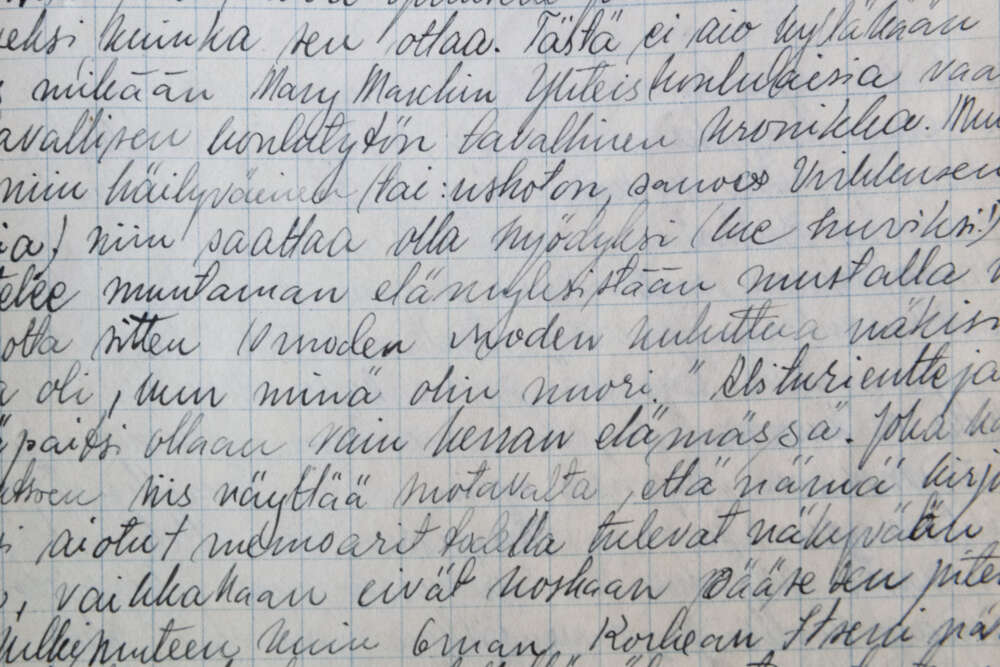 eksi kuinka sen ottaa. Tästä ei aio kyläkään
mikään Mary Marckin Yhteiskoululaisia vaa
avallisen koulutytön tavallinen kronikka. Mu
niin häilyväinen (tai: uskoton, sanoos Virkkusen
ia) niin saattaa olla hyödyksi (lue huviksi!)
elee muutaman elämyksistään mustalla
otta sitten vuoden kuluttua näkisi
oli, kun minä olin nuori." Abiturientteja
päitsi ollaan vain kerran elämässä. Joka
siis näyttää siltä, että nämä kirj
aiotut memoarit todella tulevat näkyvään
, vaikkakaan eivät koskaan pääse sen pite
julkisuuteen kuin Oman Korkean Itseni nä